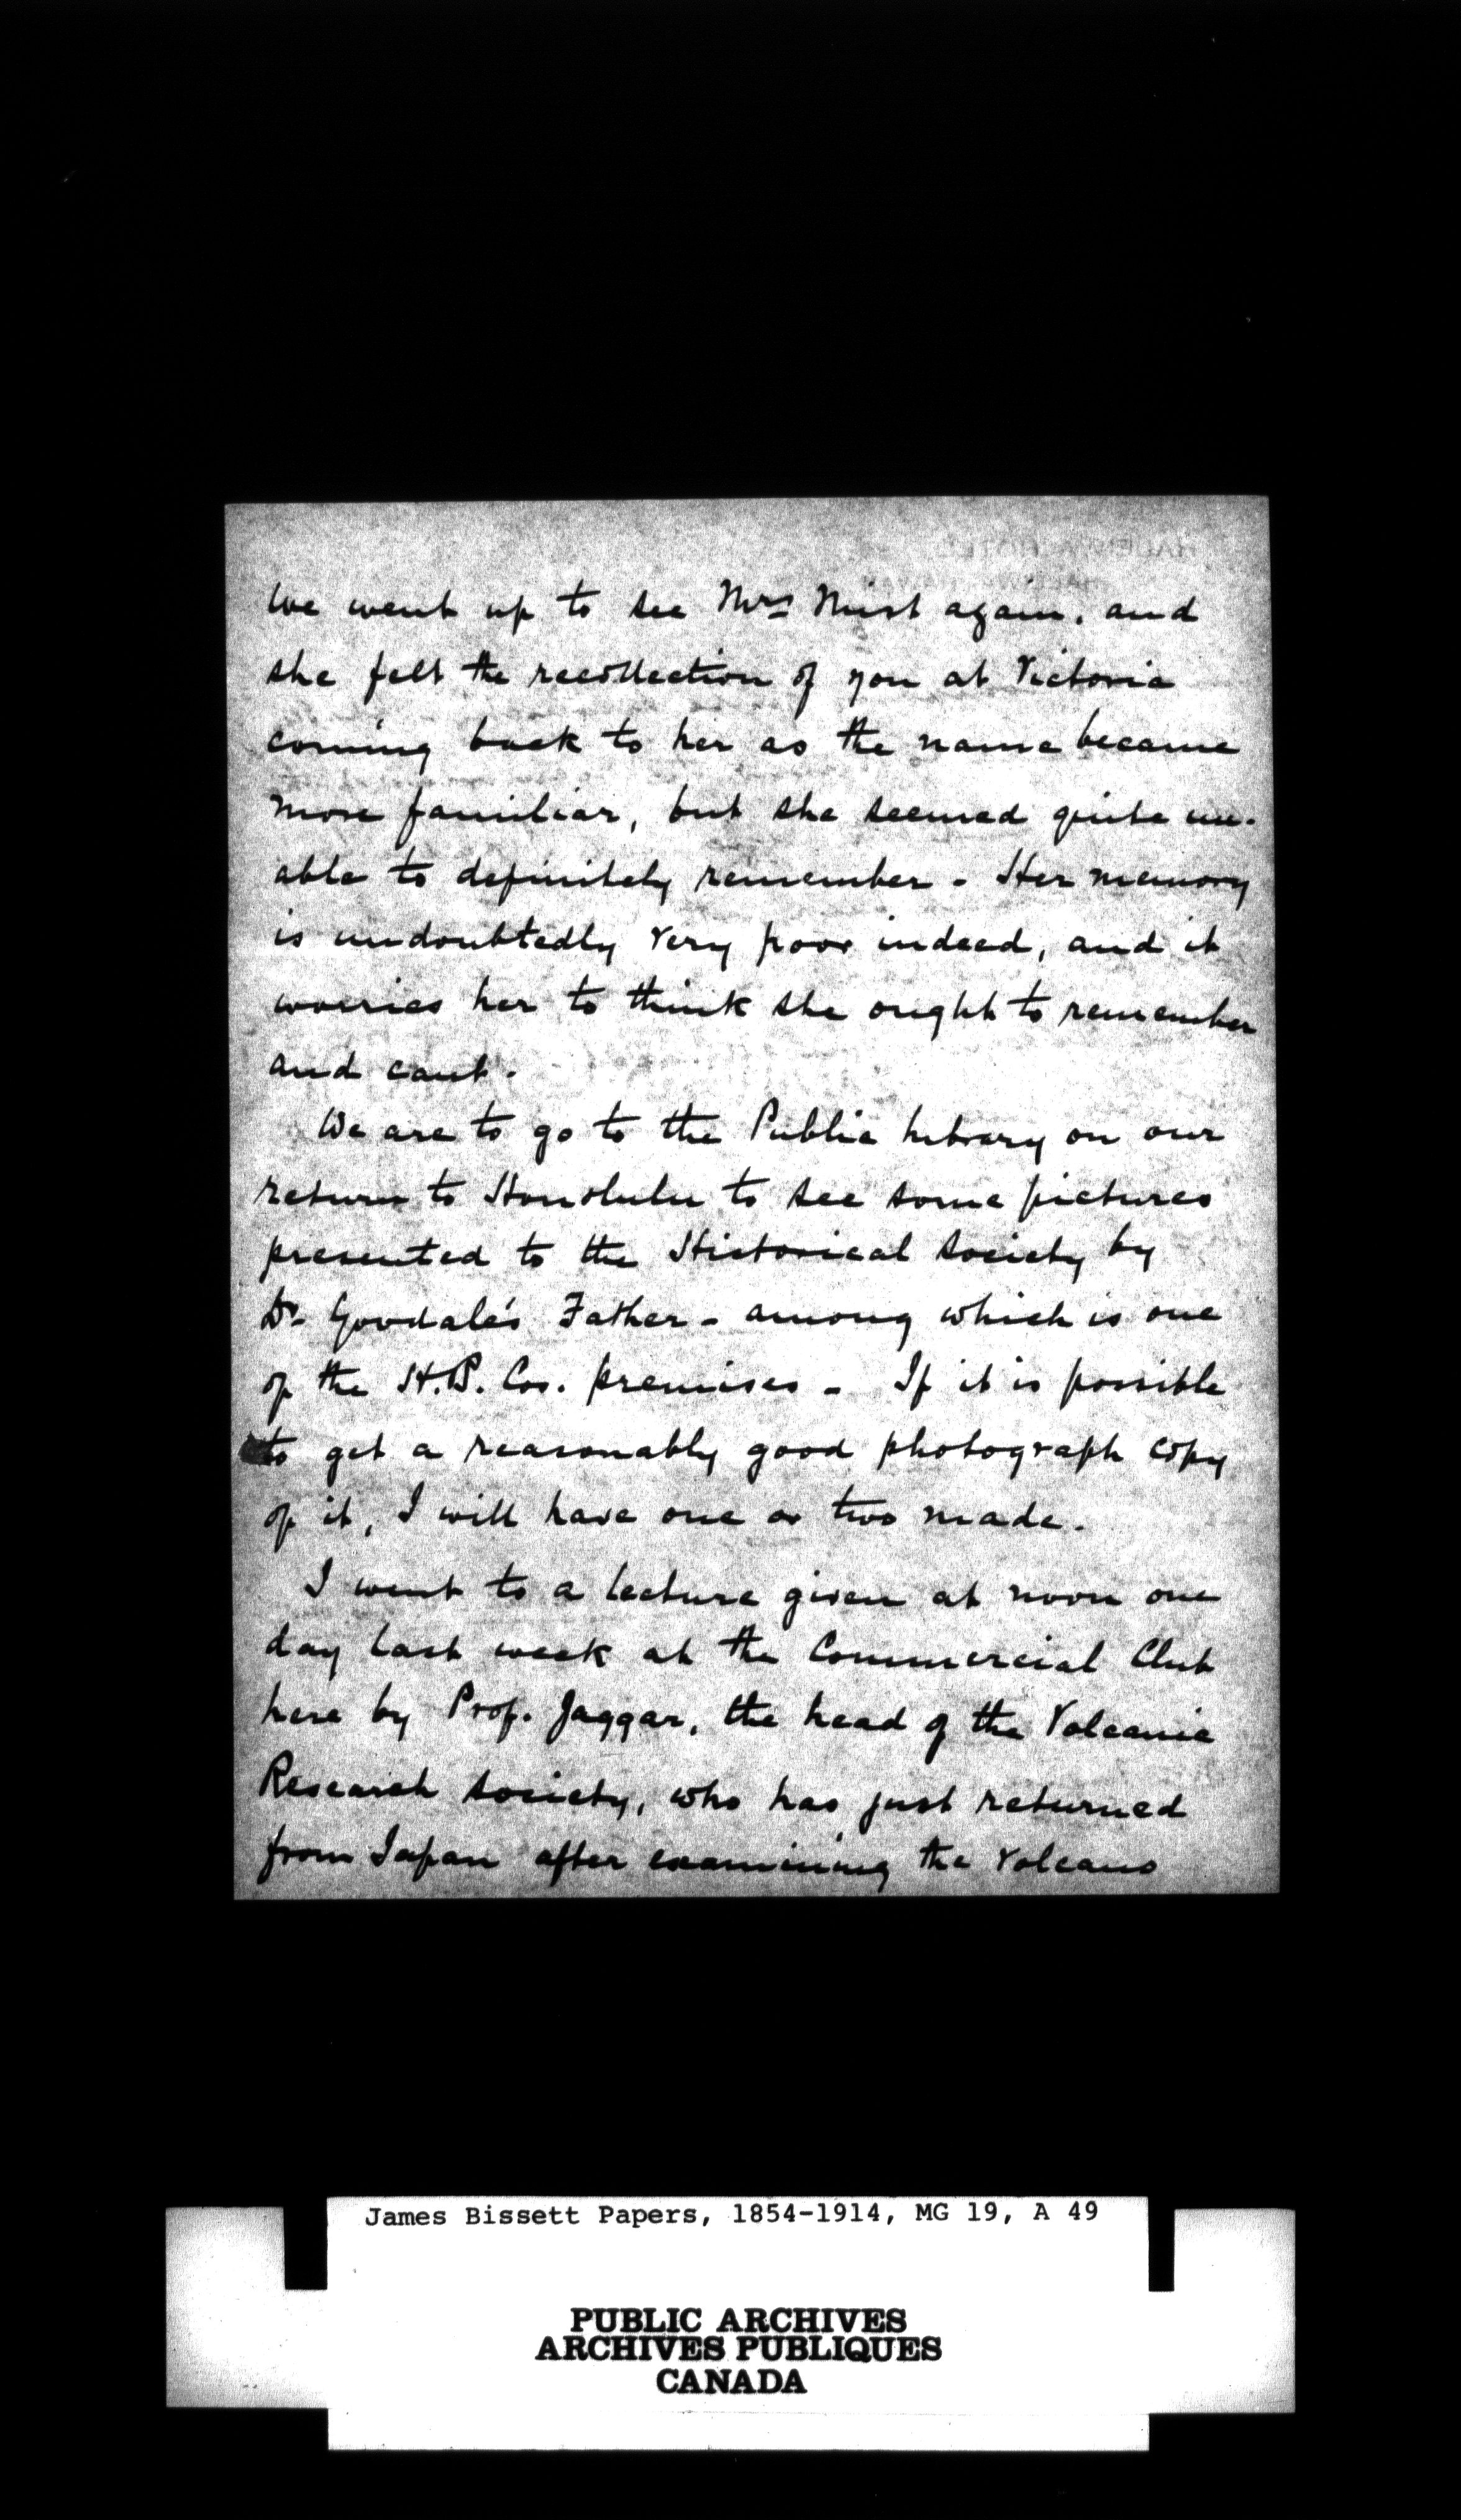 We went up to see Mrs Mist again, and
she felt the recollection of you at Victoria
coming back to her as the name became
more familiar, but she seemed quite un-
able to definitely remember - Her memory
is undoubtedly very poor indeed, and it
worries her to think she ought to remember
and cant.
We are to go to the Public Library on our
return to Honolulu to see some pictures
presented to the Historical Society by
Dr. Goodale's Father - among which is one
of the H.B. Cos. premises - If it is possible
to get a reasonably good photograph copy
of it, I will have one or two made.
I went to a lecture given at noon one
day last week at the Commercial Club
here by Prof. Jaggar, the head of the Volcanic
Research Society, who has just returned
from Japan after examining the Volcano
James Bissett Papers, 1854-1914, MG 19, A 49
PUBLIC ARCHIVES
ARCHIVES PUBLIQUES
CANADA